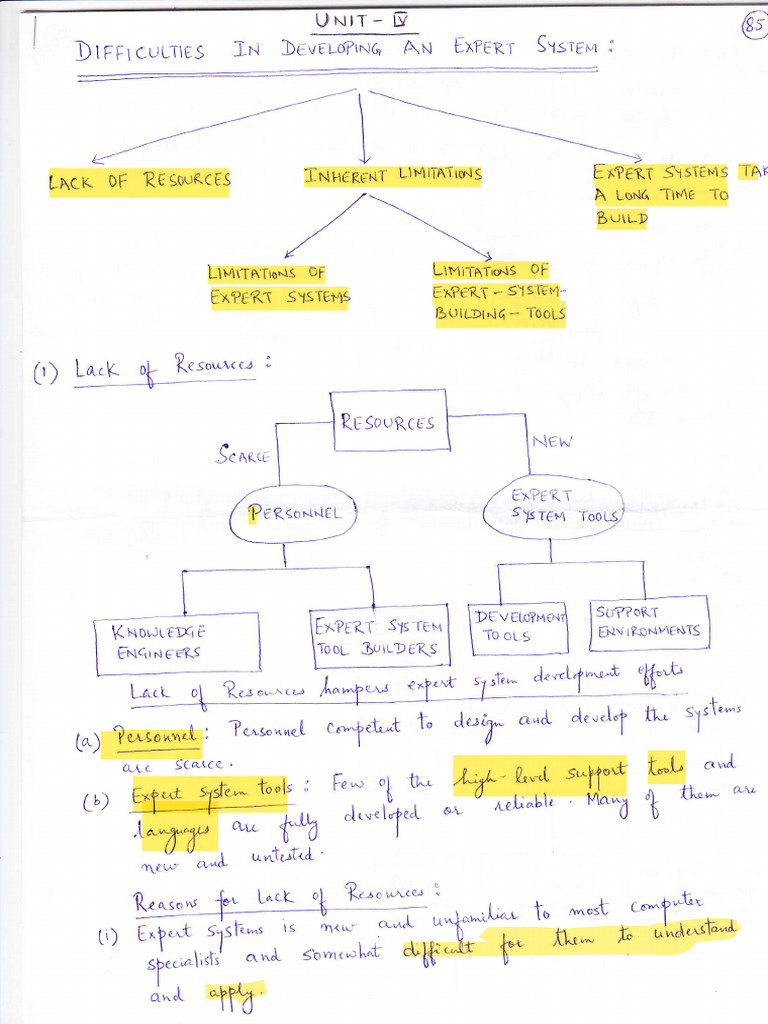 UNIT - IV
85
DIFFICULTIES IN DEVELOPING AN EXPERT SYSTEM:
LACK OF RESOURCES
INHERENT LIMITATIONS
EXPERT SYSTEMS TAK
A LONG TIME TO
BUILD
LIMITATIONS OF
EXPERT SYSTEMS
LIMITATIONS OF
EXPERT-SYSTEM-
BUILDING-TOOLS
(1) Lack of Resources:
RESOURCES
SCARCE
NEW
PERSONNEL
EXPERT
SYSTEM TOOLS
KNOWLEDGE
ENGINEERS
EXPERT SYSTEM
TOOL BUILDERS
DEVELOPMENT
TOOLS
SUPPORT
ENVIRONMENTS
Lack of Resources hampers expert system development efforts
(a) Personnel: Personnel competent to design and develop the systems
are scarce.
(b) Expert system tools: Few of the high-level support tools and
languages are fully developed or reliable. Many of them are
new and untested.
Reasons for Lack of Resources:
(i) Expert Systems is new and unfamiliar to most computer
specialists and somewhat difficult for them to understand
and apply.